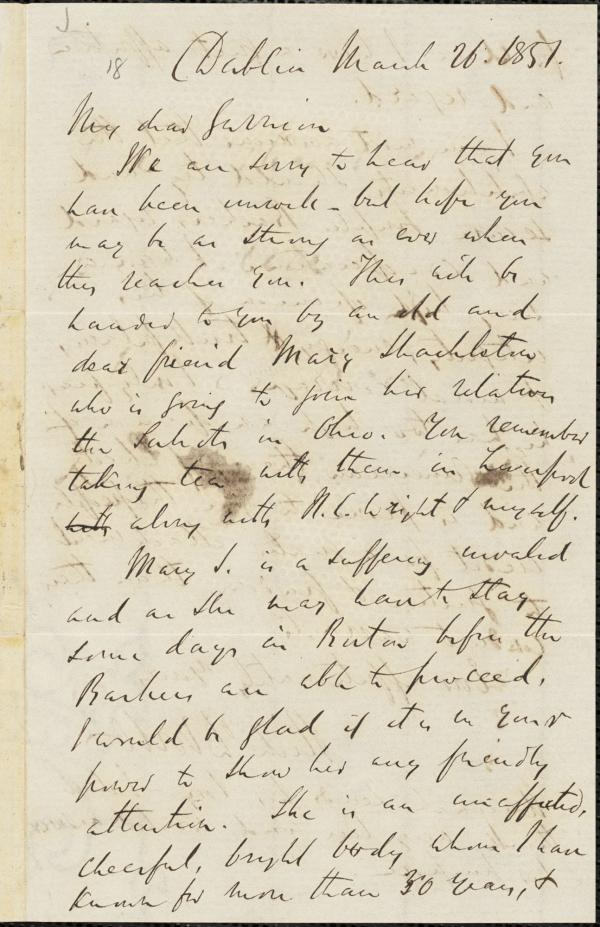 18
Dublin March 26. 1851.
My dear Garrison
We are sorry to hear that you
have been unwell - but hope you
may be as strong as ever when
this reaches you. This will be
handed to you by an old and
dear friend Mary Shackleton
who is going to join her relations
the in Ohio. You remember
taking tea with them in Liverpool
with along with H. C. Wright & myself.
Mary S. is a suffering invalid
and as she may have to stay
some days in Boston before the
Barkers are able to proceed,
I would be glad if it is in your
power to show her any friendly
attention. She is an unaffected,
cheerful, bright body whom I have
known for more than 30 years, &